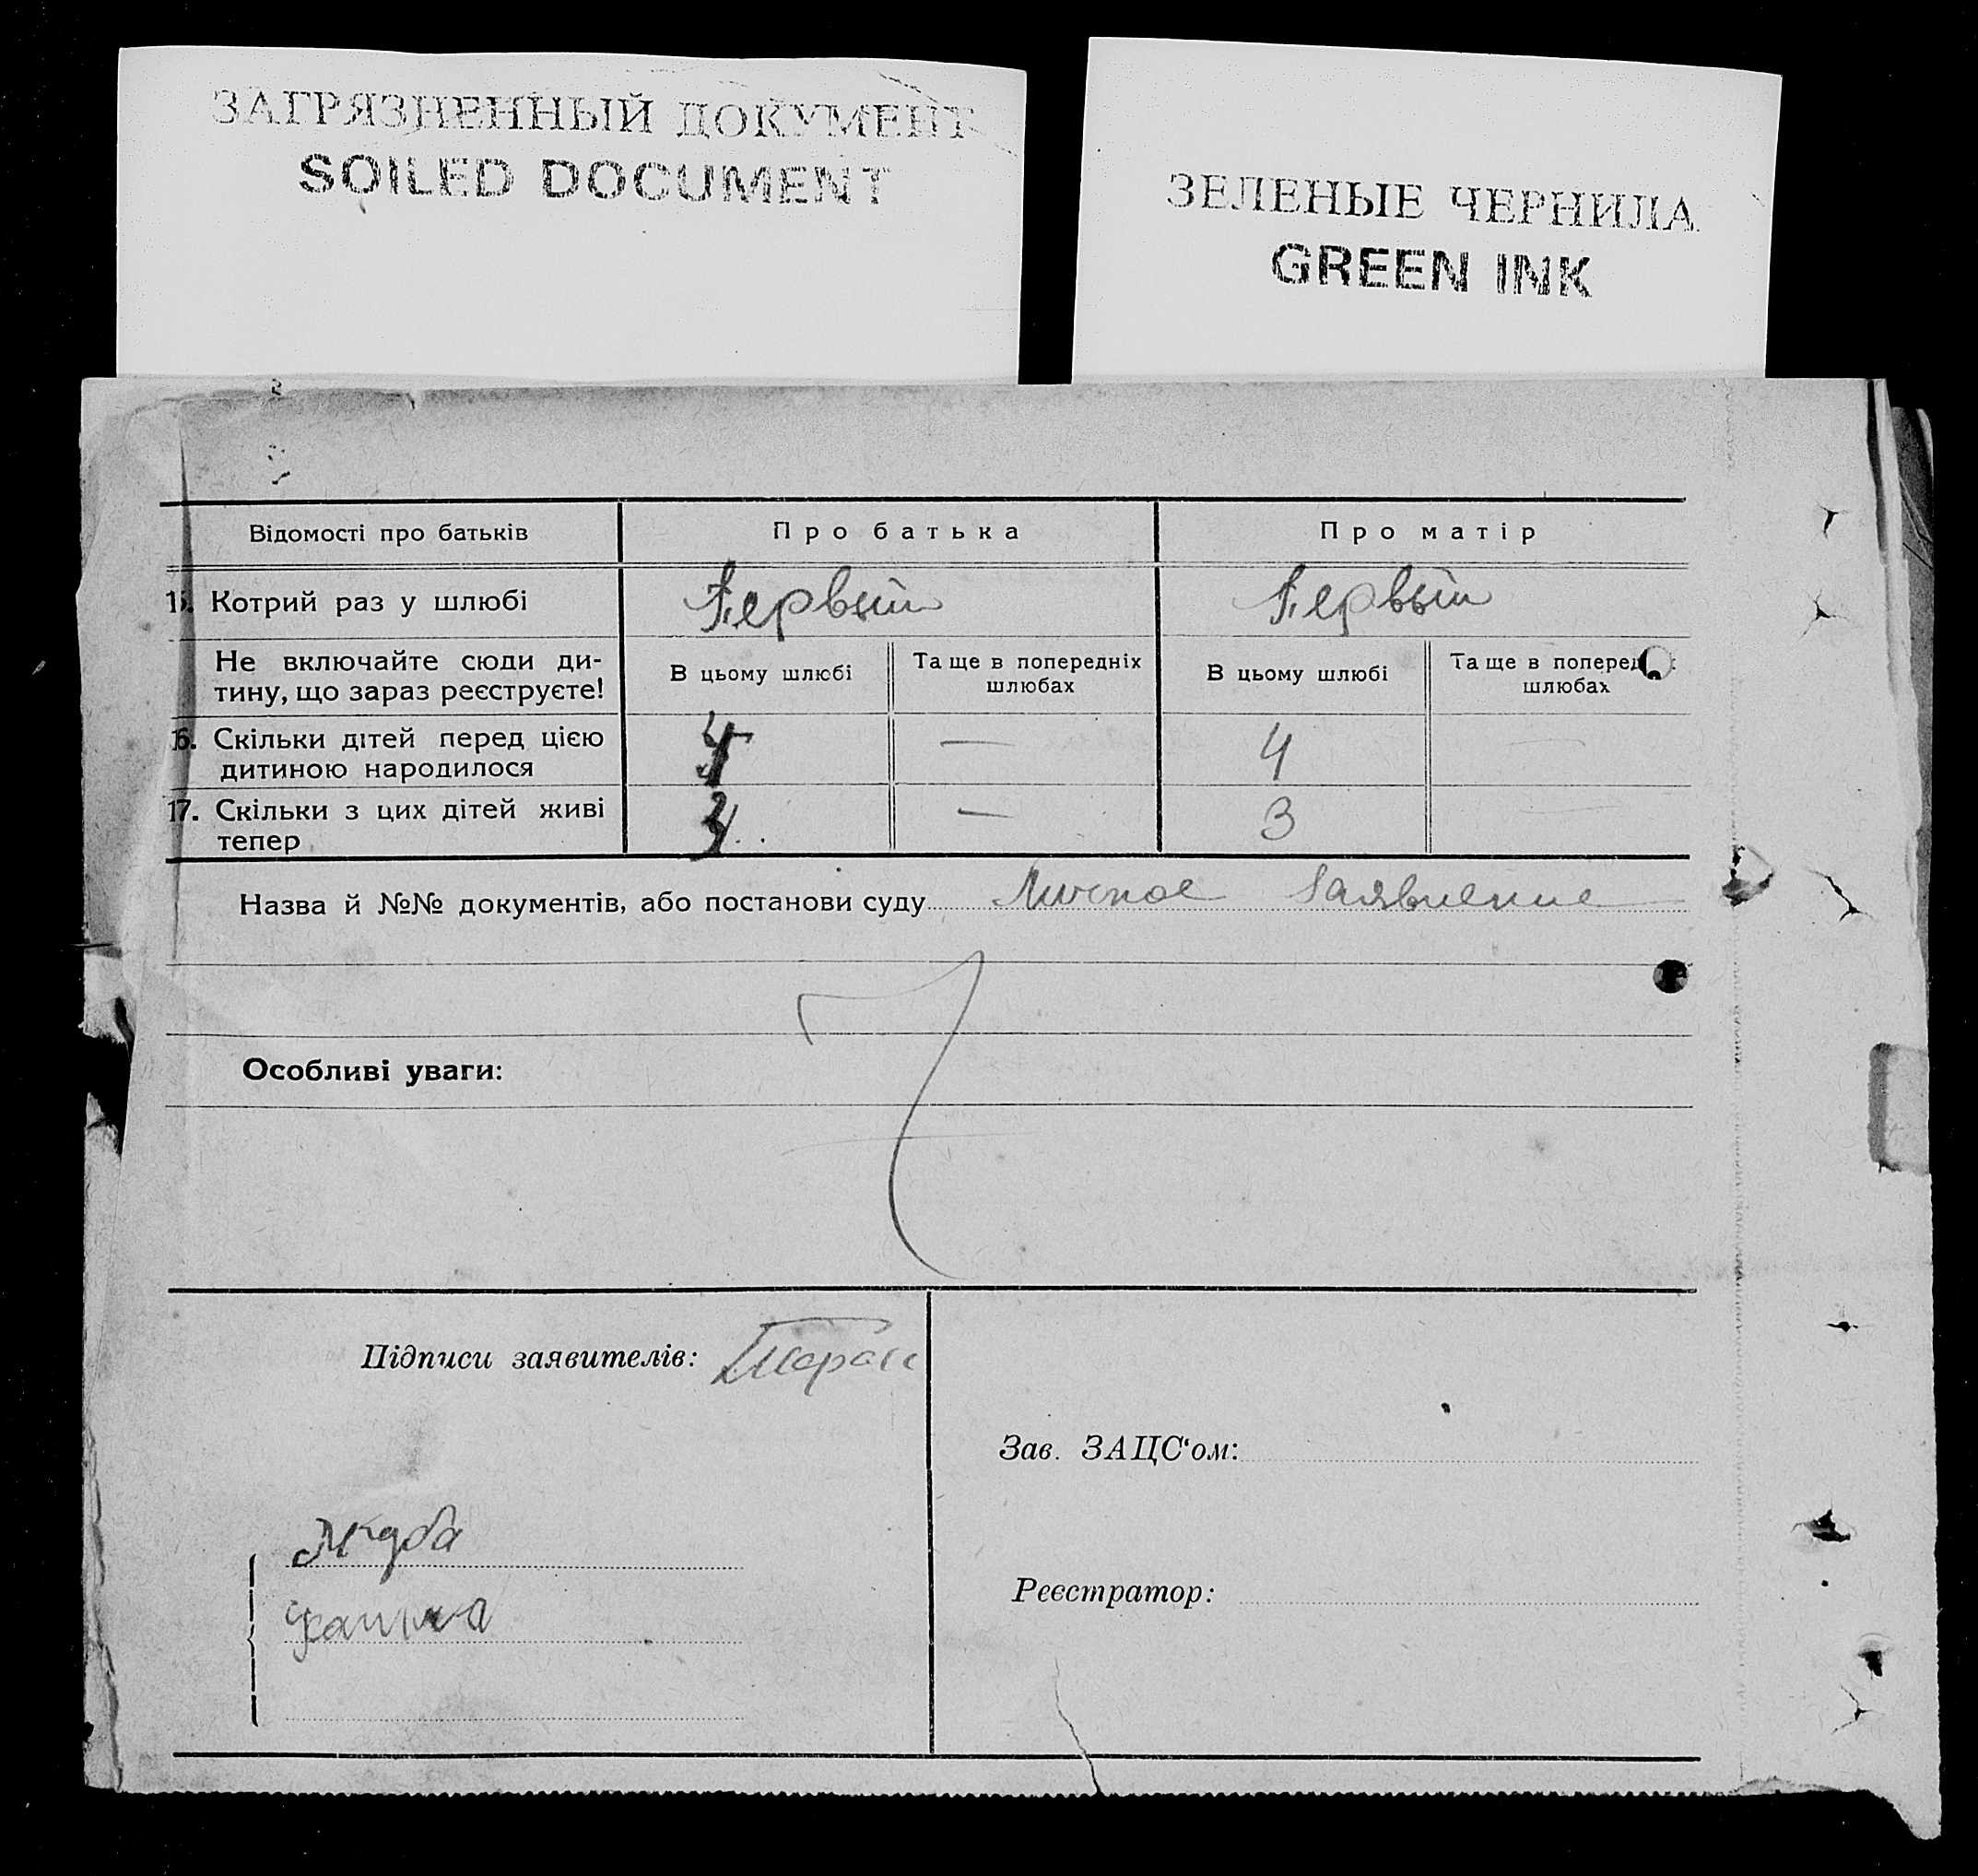 ЗАГРЯЗНЕННЫЙ ДОКУМЕНТ
SOILED DOCUMENT
ЗЕЛЕНЫЕ ЧЕРНИЛА
GREEN INK
Відомості про батьків Про батька Про матір
15. Котрий раз у шлюбі Первый Первый
Не включайте сюди ди-
тину, що зараз реєструєте!
В цьому шлюбі
Та ще в попередніх
шлюбах
В цьому шлюбі
Та ще в поперед
шлюбах
16. Скільки дітей перед цією
дитиною народилося
4 — 4 —
17. Скільки з цих дітей живі
тепер
— 3 —
Назва й №№ документів, або постанови суду Личное Заявление
Особливі уваги:
Підписи заявителів:
Зав. ЗАЦС‘ом:
Реєстратор: